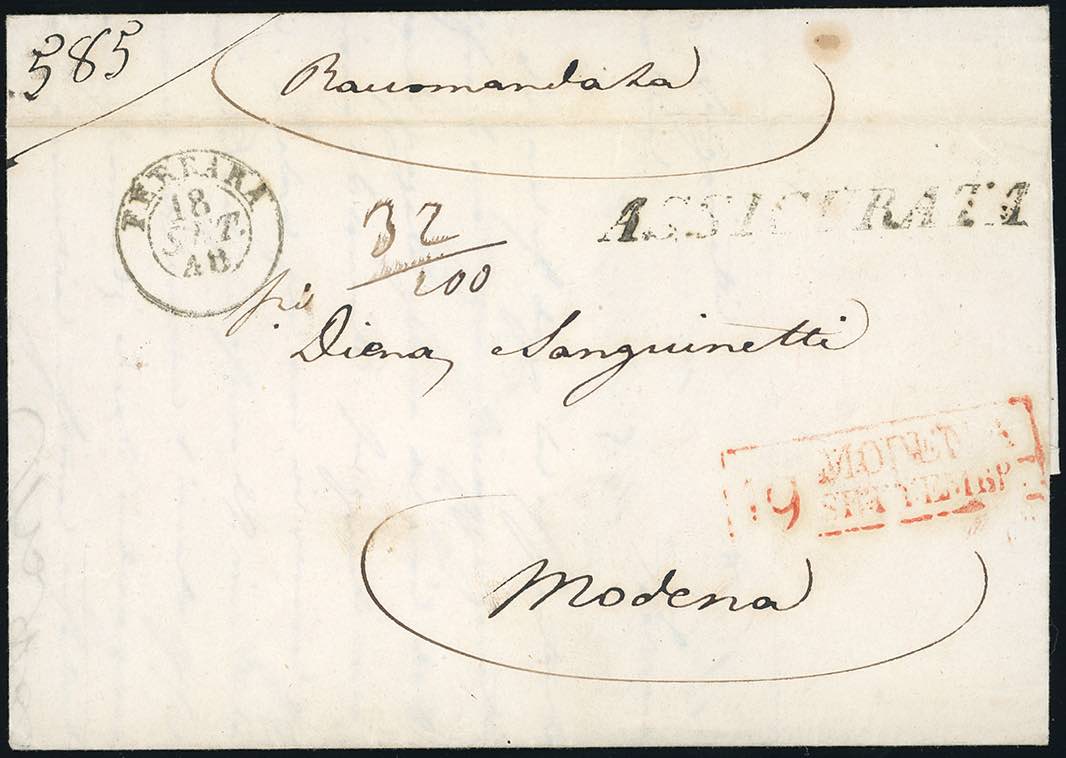 585
Raccomandata
FERRARA
18
SET.
48
ASSICURATA
32
100
Diena, Sanguinetti
19
SETTEMBR
Modena